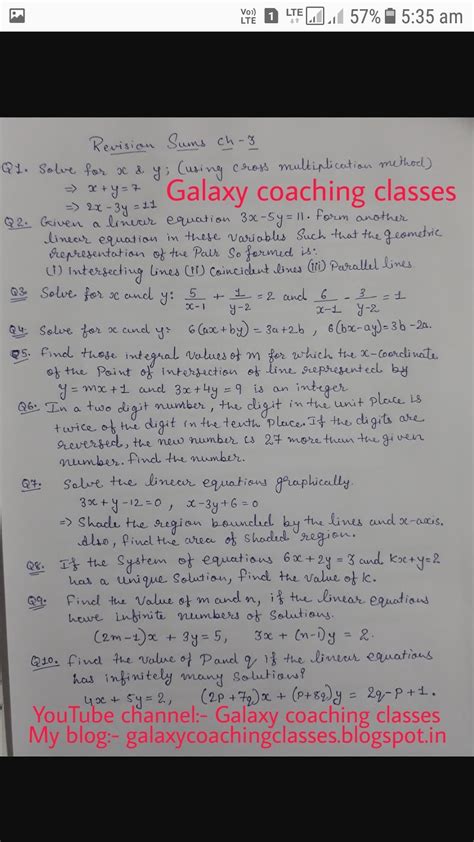 Vo) LTE 1 LTE 57% 5:35 am
Revision Sums Ch-3
Q1. Solve for x & y; (using cross multiplication method)
⇒ x+y=7
⇒ 2x-3y=11
Galaxy coaching classes
Q2. Given a linear equation 3x-5y=11. Form another
linear equation in these variables such that the geometric
representation of the Pair So formed is:
(I) Intersecting lines (II) Coincident lines (III) Parallel lines
Q3 Solve for x and y: 5/x-1 + 1/y-2 = 2 and 6/x-1 - 3/y-2 = 1
Q4. Solve for x and y: 6(ax+by) = 3a+2b, 6(bx-ay)=3b-2a.
Q5. Find those integral values of m for which the x-coordinate
of the Point of intersection of line represented by
y=mx+1 and 3x+4y=9 is an integer
Q6. In a two digit number, the digit in the unit place is
twice of the digit in the tenth place. If the digits are
reversed, the new number is 27 more than the given
number. Find the number.
Q7. Solve the linear equations graphically.
3x+y-12=0, x-3y+6=0
⇒ Shade the region bounded by the lines and x-axis.
Also, find the area of shaded region.
Q8. If the System of equations 6x+2y=3 and kx+y=2
has a unique Solution, find the value of k.
Q9. Find the value of m and n, if the linear equations
have infinite numbers of Solutions.
(2m-1)x + 3y=5, 3x + (n-1)y = 2.
Q10. Find the value of P and q, if the linear equations
has infinitely many Solutions?
4x + 5y=2, (2p+7q)x + (p+8q)y = 2q-p+1.
YouTube channel:- Galaxy coaching classes
My blog:- galaxycoachingclasses.blogspot.in